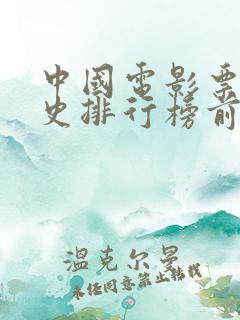 中國電影票
史排行榜前
溫克尔曼
未经同意禁止转载